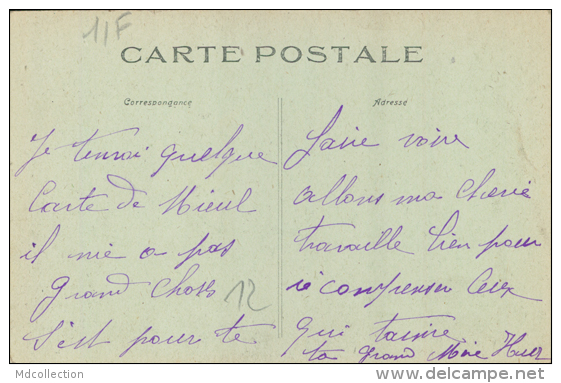 11F
CARTE POSTALE
Correspondance
Adresse
Je tenvoi quelque
Carte de Mieul
il nie a pas
Grand Choses
12
S'est pour te
faire voire
allons ma cherie
travaille bien pour
récompenser Ceux
qui taime
ta Grand Mère
Mdcollection
WWW.DELCAMPE.NET